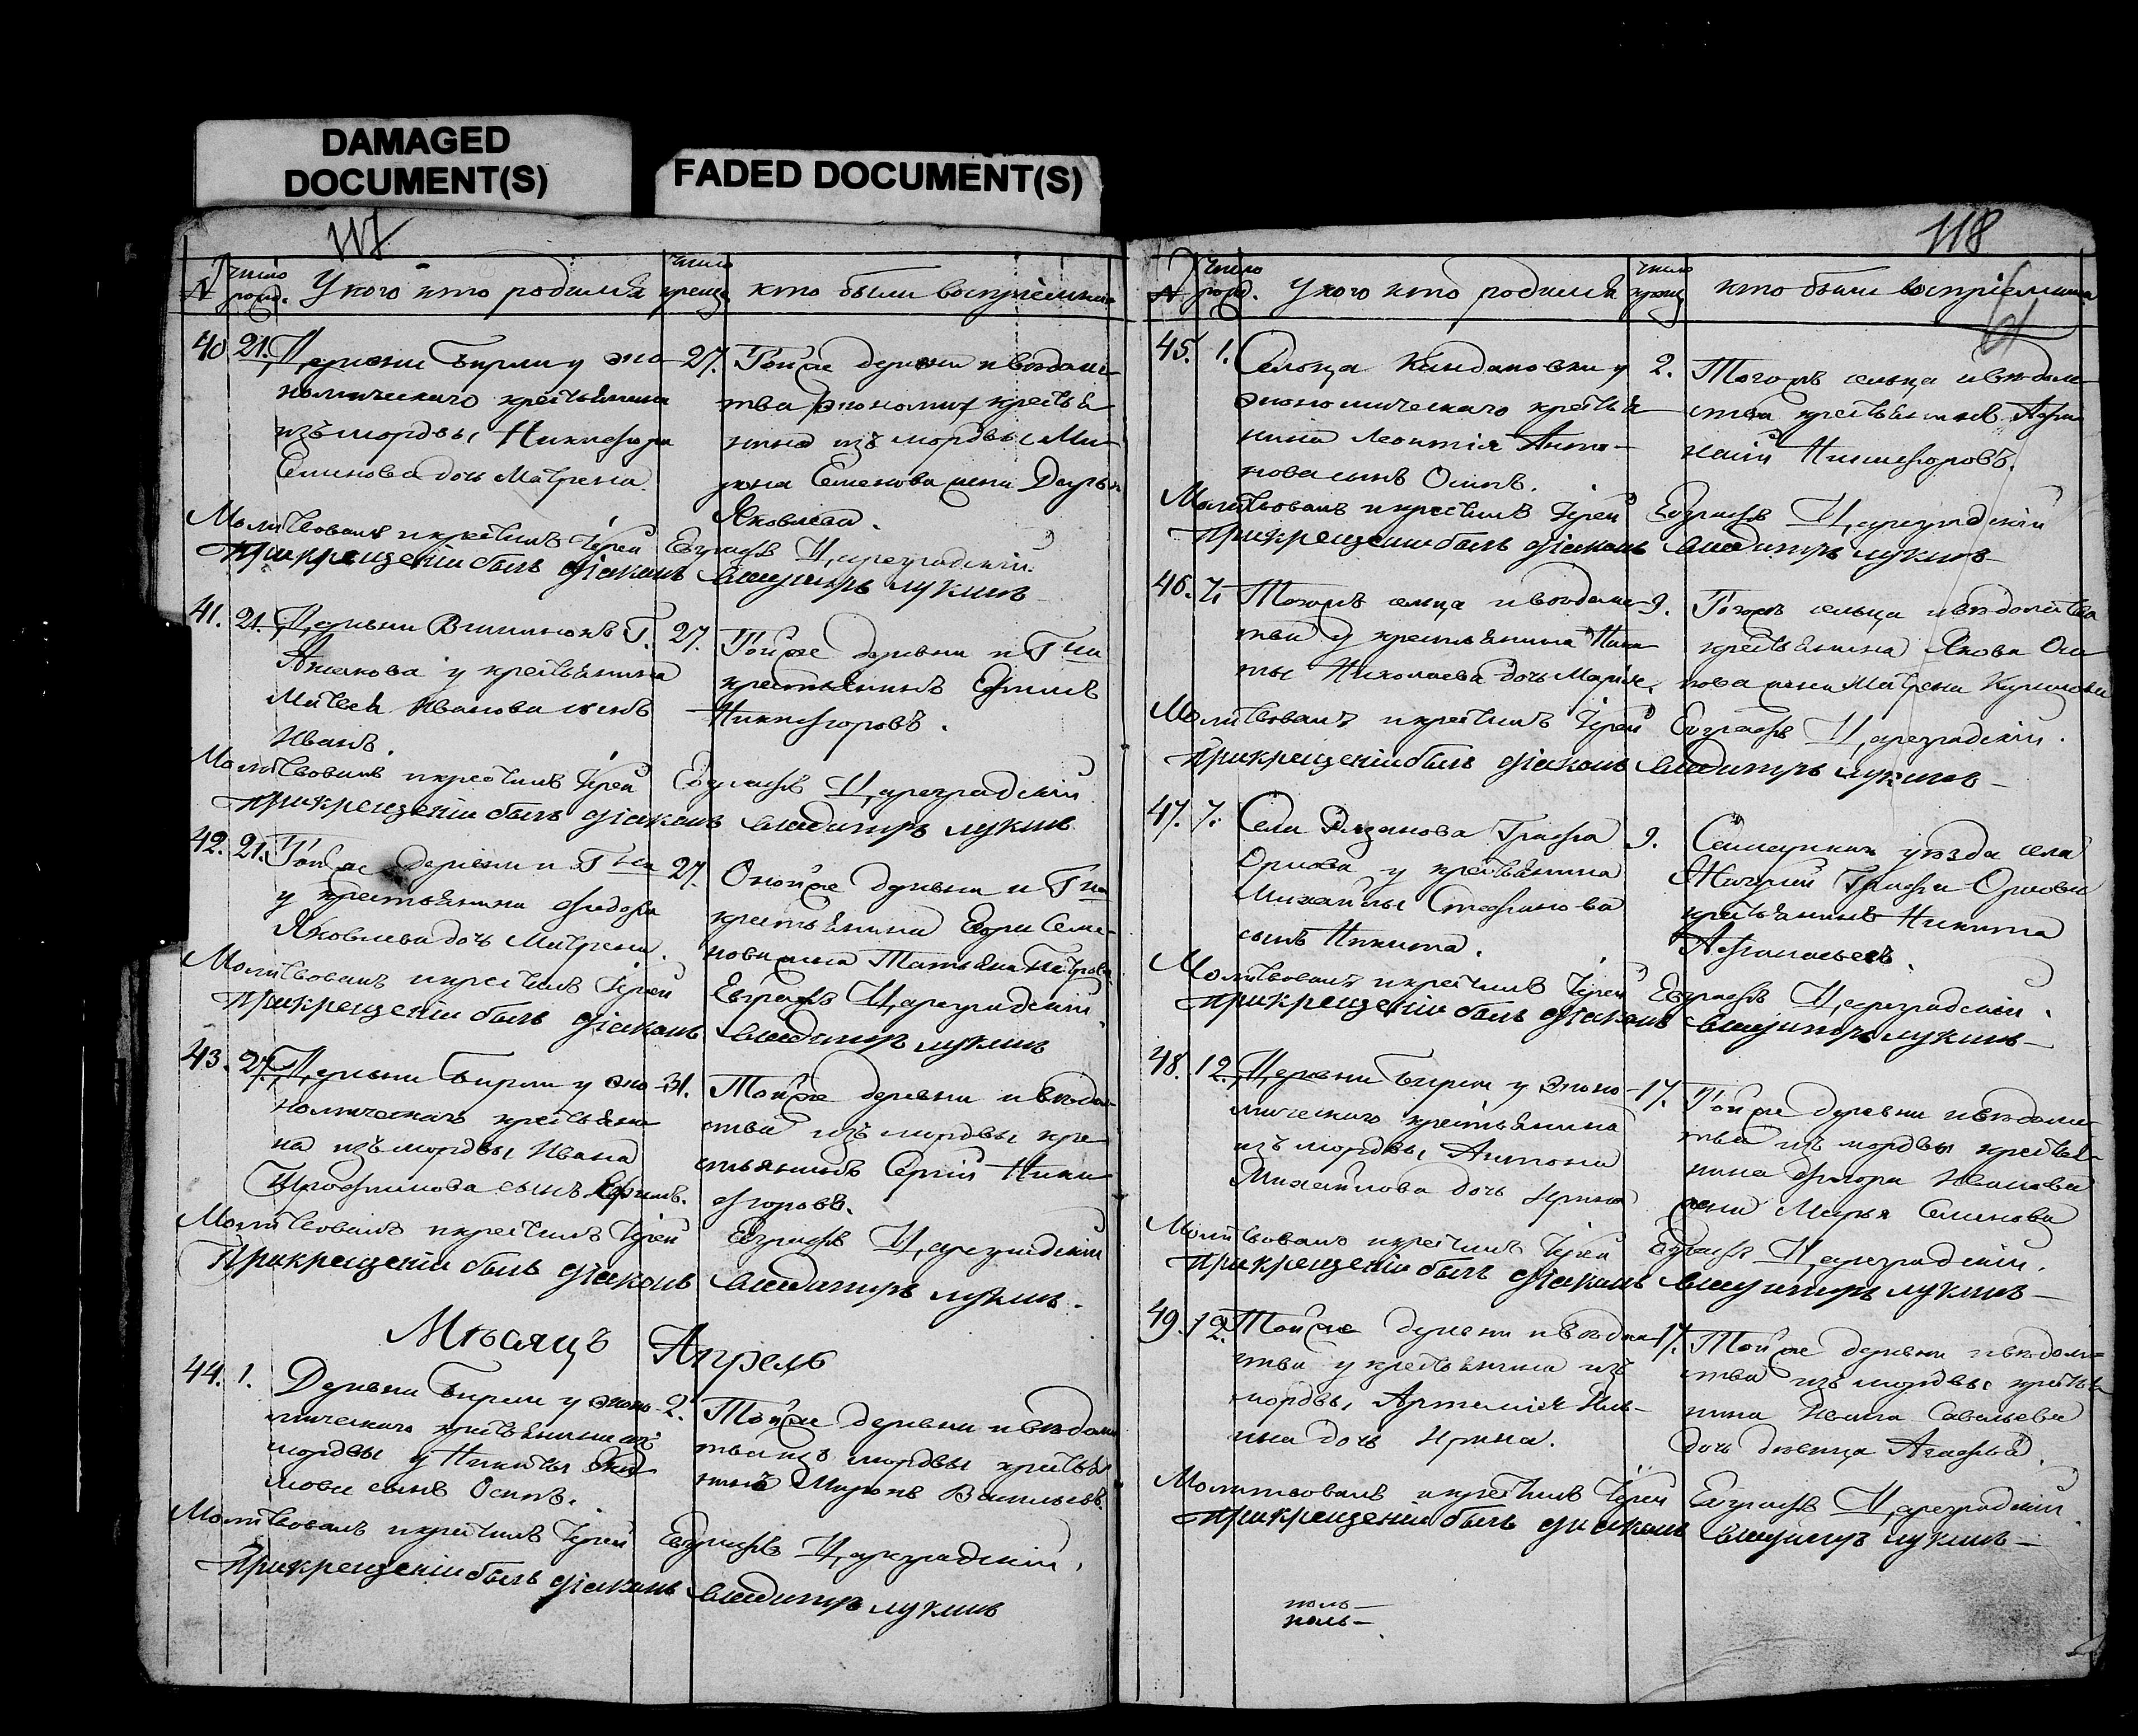 DAMAGED
DOCUMENT(S)
FADED DOCUMENT(S)
117
№ число рожд. У кого кто родился число крещ. кто были восприемники
40 21. Деревни Бирли у эко-
номическаго крестьянина
изъ мордвы Никифора
Семенова дочь Матрена.
27. Той же деревни и ведомс-
тва экономич крестья
нина изъ мордвы Ми-
рона Семенова жена Дарья
Яковлева.
Молитвовалъ и крестилъ Іерей Евграфъ Цареградскій.
при крещеніи былъ діаконъ Владимиръ Лукинъ
41. 21. Деревни Г.
Анакова у крестьянина
Матвея Иванова сынъ
Иванъ.
27. Той же деревни и Г на
крестьянинъ Ефимъ
Никифоровъ.
Молитвовалъ и крестилъ Іерей Евграфъ Цареградскій
при крещеніи былъ діаконъ Владимиръ Лукинъ
42. 21. Той же деревни и Г на
у крестьянина Федора
Яковлева дочь Матрена.
27. Оной же деревни и Г на
крестьянина Семе-
нова жена Татьяна Петрова
Молитвовалъ и крестилъ Іерей Евграфъ Цареградскій.
при крещеніи былъ діаконъ Владимиръ Лукинъ
43. 27. Деревни Бирли у эко-
номическаго крестьяни
на изъ мордвы Ивана
Трофимова сынъ Ефимъ.
31. Той же деревни и ведомс-
тва изъ мордвы кре
стьянинъ Сергій Ники
форовъ.
Молитвовалъ и крестилъ Іерей Евграфъ Цареградскій
При крещеніи былъ діаконъ Владимиръ Лукинъ.
Мѣсяцъ Апрель
44. 1. Деревни Бирли у эконо-
мическаго крестьянина изъ
мордвы у Никиты
мова сынъ Осипъ.
2. Той же деревни и ведомс
тва изъ мордвы крестья
нинъ Миронъ Васильевъ.
Молитвовалъ и крестилъ Іерей Евграфъ Цареградскій.
При крещеніи былъ діаконъ Владимиръ Лукинъ
118
№ число рожд. У кого кто родился число крещ кто были восприемники
45. 1. Сельца Кандаковки у
экономическаго крестья
нина Леонтія Анто-
нова сынъ Осипъ.
2. Тогожъ сельца и ведомс-
тва крестьянинъ Афа
насій Никифоровъ.
Молитвовалъ и крестилъ Іерей Евграфъ Цареградскій
При крещеніи былъ діаконъ Владимиръ Лукинъ
46. 7. Тогожъ сельца и ведомс-
тва у крестьянина Ники
ты Николаева дочь Марія.
9. Тогожъ сельца и ведомства
крестьянина Якова Оси
пова жена Матрена
Молитвовалъ и крестилъ Іерей Евграфъ Цареградскій.
При крещеніи былъ діаконъ Владимиръ Лукинъ
47. 7. Села Рязанова Графа
Орлова у крестьянина
Михайлы Стефанова
сынъ Никита.
9. уезда села
Графа Орлова
крестьянинъ Никита
Афанасьевъ.
Молитвовалъ и крестилъ Іерей Евграфъ Цареградскій.
При крещеніи былъ діаконъ Владимиръ Лукинъ
48. 12. Деревни Бирли у эконо-
мическаго крестьянина
изъ мордвы Антона
Михайлова дочь Ирина
17. Той же деревни и ведомс-
тва изъ мордвы крестья-
нина Федора Иванова
жена Марья Семенова
Молитвовалъ и крестилъ Іерей Евграфъ Цареградскій.
При крещеніи былъ діаконъ Владимиръ Лукинъ
49. 12. Той же деревни и ведомс-
тва у крестьянина изъ
мордвы Артемія Иль-
ина дочь Ирина.
17. Той же деревни и ведомс-
тва изъ мордвы крестья
нина Ивана Савельева
дочь девица Агафья.
Молитвовалъ и крестилъ Іерей Евграфъ Цареградскій
При крещеніи былъ діаконъ Владимиръ Лукинъ